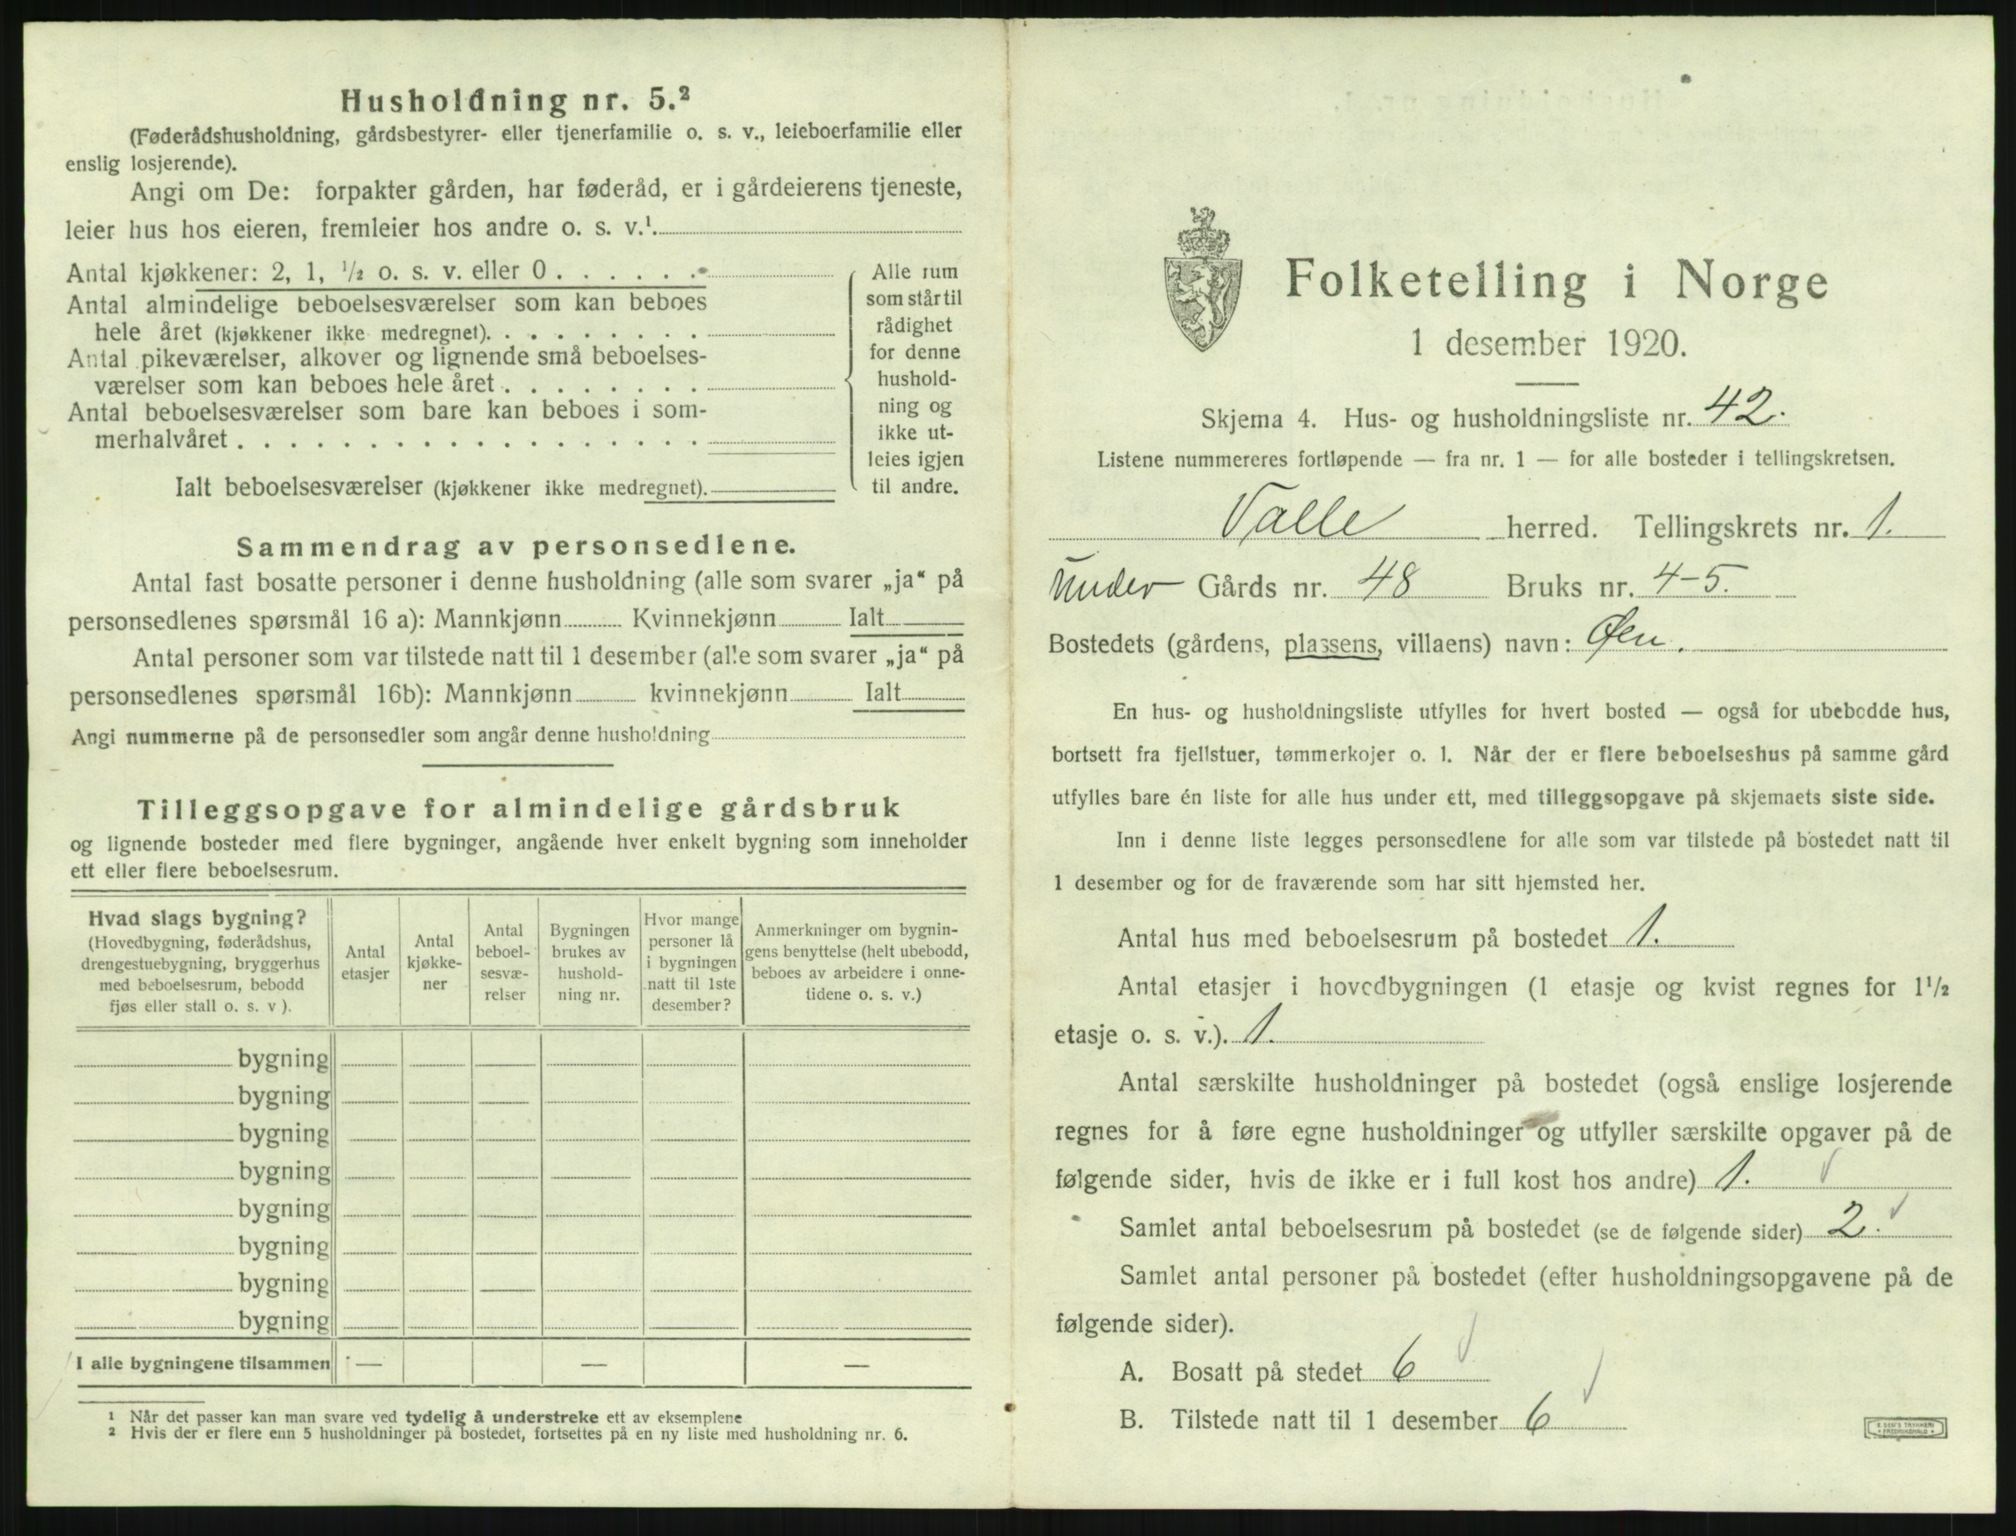 Husholdning nr. 5.²
(Føderådshusholdning, gårdsbestyrer- eller tjenerfamilie o. s. v., leieboerfamilie eller
enslig losjerende).
Angi om De: forpakter gården, har føderåd, er i gårdeierens tjeneste,
leier hus hos eieren, fremleier hos andre o. s. v.¹
Antal kjøkkener: 2, 1, ½ o. s. v. eller 0 . . . . . .
Antal almindelige beboelsesværelser som kan beboes
hele året (kjøkkener ikke medregnet). . . . . . . . .
Antal pikeværelser, alkover og lignende små beboelses-
værelser som kan beboes hele året . . . . . . . .
Antal beboelsesværelser som bare kan beboes i som-
merhalvåret . . . . . . . . . . . . . . . . . .
Ialt beboelsesværelser (kjøkkener ikke medregnet).
Alle rum
som står til
rådighet
for denne
hushold-
ning og
ikke ut-
leies igjen
til andre.
Sammendrag av personsedlene.
Antal fast bosatte personer i denne husholdning (alle som svarer „ja“ på
personsedlenes spørsmål 16 a): Mannkjønn Kvinnekjønn Ialt
Antal personer som var tilstede natt til 1 desember (alle som svarer „ja“ på
personsedlenes spørsmål 16b): Mannkjønn kvinnekjønn Ialt
Angi nummerne på de personsedler som angår denne husholdning
Tilleggsopgave for almindelige gårdsbruk
og lignende bosteder med flere bygninger, angående hver enkelt bygning som inneholder
ett eller flere beboelsesrum.
Hvad slags bygning?
(Hovedbygning, føderådshus,
drengestuebygning, bryggerhus
med beboelsesrum, bebodd
fjøs eller stall o. s. v ).
Antal
etasjer
Antal
kjøkke-
ner
Antal
beboel-
sesvæ-
relser
Bygningen
brukes av
hushold-
ning nr.
Hvor mange
personer lå
i bygningen
natt til 1ste
desember?
Anmerkninger om bygnin-
gens benyttelse (helt ubebodd,
beboes av arbeidere i onne-
tidene o. s. v.)
bygning
bygning
bygning
bygning
bygning
bygning
bygning
bygning
I alle bygningene tilsammen — — —
¹ Når det passer kan man svare ved tydelig å understreke ett av eksemplene
² Hvis der er flere enn 5 husholdninger på bostedet, fortsettes på en ny liste med husholdning nr. 6.
Folketelling i Norge
1 desember 1920.
Skjema 4. Hus- og husholdningsliste nr. 42.
Listene nummereres fortløpende — fra nr. 1 — for alle bosteder i tellingskretsen.
Valle herred. Tellingskrets nr. 1.
Under Gårds nr. 48 Bruks nr. 4-5.
Bostedets (gårdens, plassens, villaens) navn: Øen.
En hus- og husholdningsliste utfylles for hvert bosted — også for ubebodde hus,
bortsett fra fjellstuer, tømmerkojer o. l. Når der er flere beboelseshus på samme gård
utfylles bare én liste for alle hus under ett, med tilleggsopgave på skjemaets siste side.
Inn i denne liste legges personsedlene for alle som var tilstede på bostedet natt til
1 desember og for de fraværende som har sitt hjemsted her.
Antal hus med beboelsesrum på bostedet 1.
Antal etasjer i hovedbygningen (1 etasje og kvist regnes for 1½
etasje o. s. v.). 1.
Antal særskilte husholdninger på bostedet (også enslige losjerende
regnes for å føre egne husholdninger og utfyller særskilte opgaver på de
følgende sider, hvis de ikke er i full kost hos andre) 1.
Samlet antal beboelsesrum på bostedet (se de følgende sider) 2.
Samlet antal personer på bostedet (efter husholdningsopgavene på de
følgende sider).
A. Bosatt på stedet 6
B. Tilstede natt til 1 desember 6